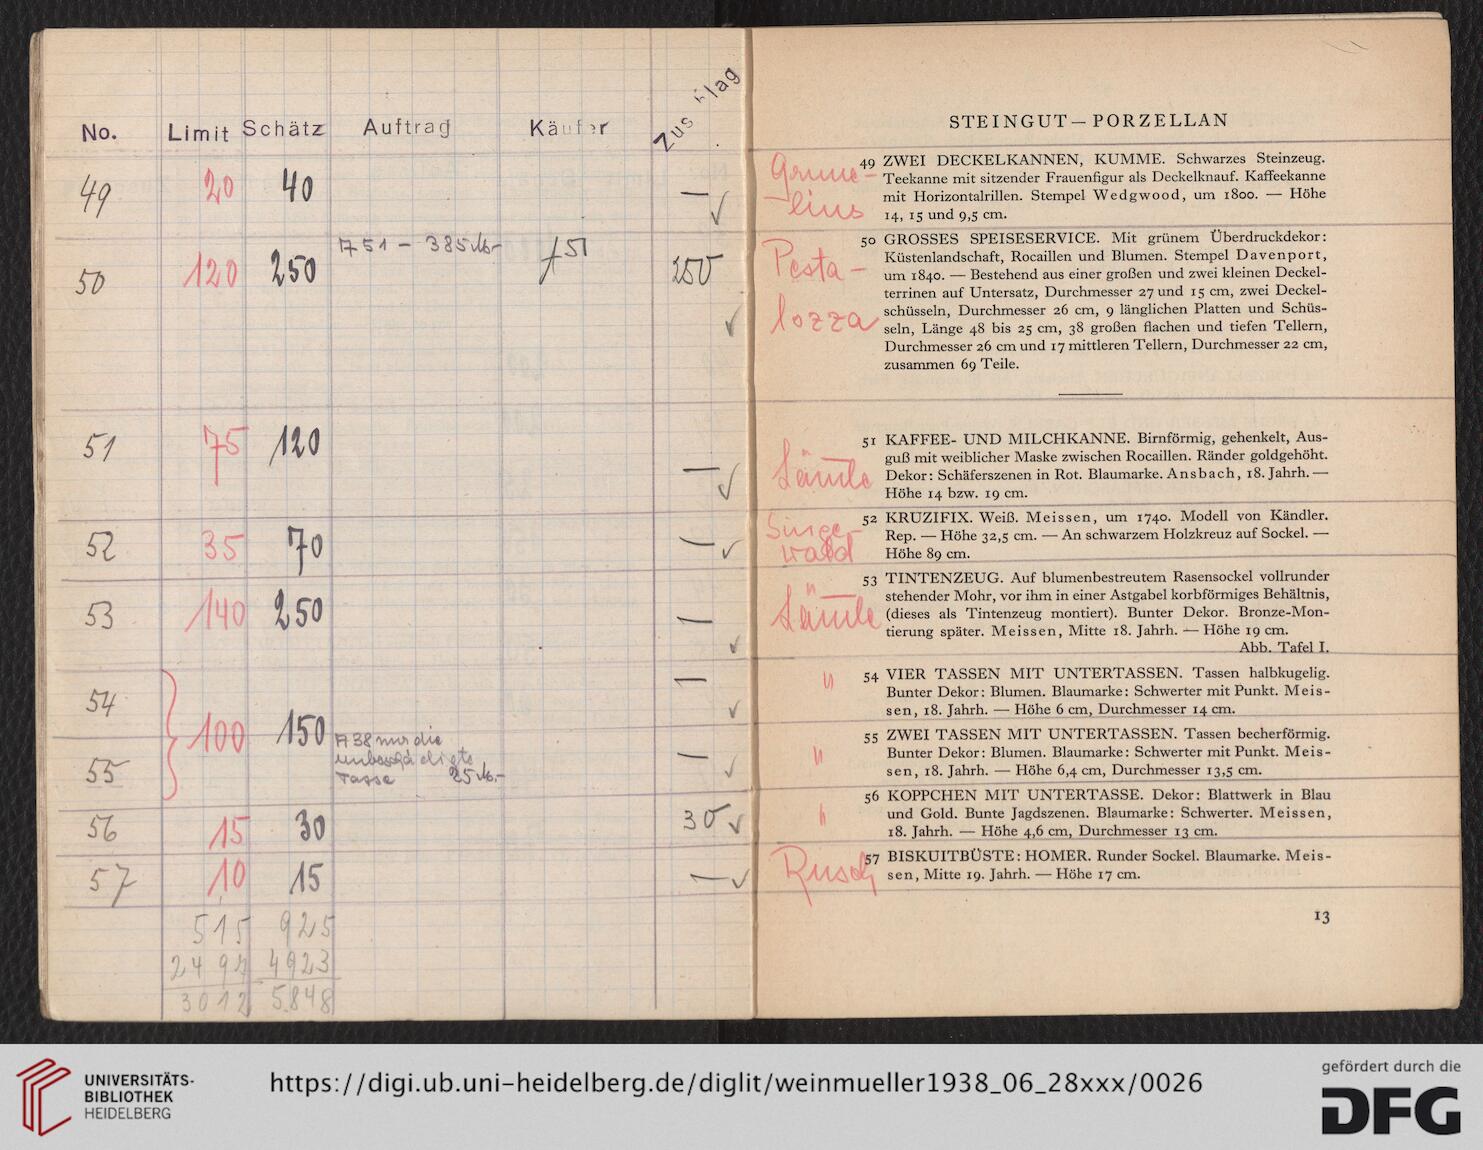 No. Limit Schätz Auftrag Käufer Zuschlag
49 20 40 —
50 120 250 A 51 – 385 M.- A 51 250
51 75 120 —
52 35 70 —
53 140 250 —
54 —
100 150
A 38 nur die
unbeschädigte
Tasse 25 M.-
55 —
56 15 30 30
57 10 15 —
515 925
2497 4923
3012 5848
STEINGUT—PORZELLAN
49 ZWEI DECKELKANNEN, KUMME. Schwarzes Steinzeug.
Teekanne mit sitzender Frauenfigur als Deckelknauf. Kaffeekanne
mit Horizontalrillen. Stempel Wedgwood, um 1800. — Höhe
14, 15 und 9,5 cm.
Pesta-
lozza
50 GROSSES SPEISESERVICE. Mit grünem Überdruckdekor:
Küstenlandschaft, Rocaillen und Blumen. Stempel Davenport,
um 1840. — Bestehend aus einer großen und zwei kleinen Deckel-
terrinen auf Untersatz, Durchmesser 27 und 15 cm, zwei Deckel-
schüsseln, Durchmesser 26 cm, 9 länglichen Platten und Schüs-
seln, Länge 48 bis 25 cm, 38 großen flachen und tiefen Tellern,
Durchmesser 26 cm und 17 mittleren Tellern, Durchmesser 22 cm,
zusammen 69 Teile.
51 KAFFEE- UND MILCHKANNE. Birnförmig, gehenkelt, Aus-
guß mit weiblicher Maske zwischen Rocaillen. Ränder goldgehöht.
Dekor: Schäferszenen in Rot. Blaumarke. Ansbach, 18. Jahrh. —
Höhe 14 bzw. 19 cm.
52 KRUZIFIX. Weiß. Meissen, um 1740. Modell von Kändler.
Rep. — Höhe 32,5 cm. — An schwarzem Holzkreuz auf Sockel. —
Höhe 89 cm.
53 TINTENZEUG. Auf blumenbestreutem Rasensockel vollrunder
stehender Mohr, vor ihm in einer Astgabel korbförmiges Behältnis,
(dieses als Tintenzeug montiert). Bunter Dekor. Bronze-Mon-
tierung später. Meissen, Mitte 18. Jahrh. — Höhe 19 cm.
Abb. Tafel I.
54 VIER TASSEN MIT UNTERTASSEN. Tassen halbkugelig.
Bunter Dekor: Blumen. Blaumarke: Schwerter mit Punkt. Meis-
sen, 18. Jahrh. — Höhe 6 cm, Durchmesser 14 cm.
55 ZWEI TASSEN MIT UNTERTASSEN. Tassen becherförmig.
Bunter Dekor: Blumen. Blaumarke: Schwerter mit Punkt. Meis-
sen, 18. Jahrh. — Höhe 6,4 cm, Durchmesser 13,5 cm.
56 KOPPCHEN MIT UNTERTASSE. Dekor: Blattwerk in Blau
und Gold. Bunte Jagdszenen. Blaumarke: Schwerter. Meissen,
18. Jahrh. — Höhe 4,6 cm, Durchmesser 13 cm.
Rusch
57 BISKUITBÜSTE: HOMER. Runder Sockel. Blaumarke. Meis-
sen, Mitte 19. Jahrh. — Höhe 17 cm.
13
UNIVERSITÄTS-
BIBLIOTHEK
HEIDELBERG
https://digi.ub.uni-heidelberg.de/diglit/weinmueller1938_06_28xxx/0026
gefördert durch die
DFG